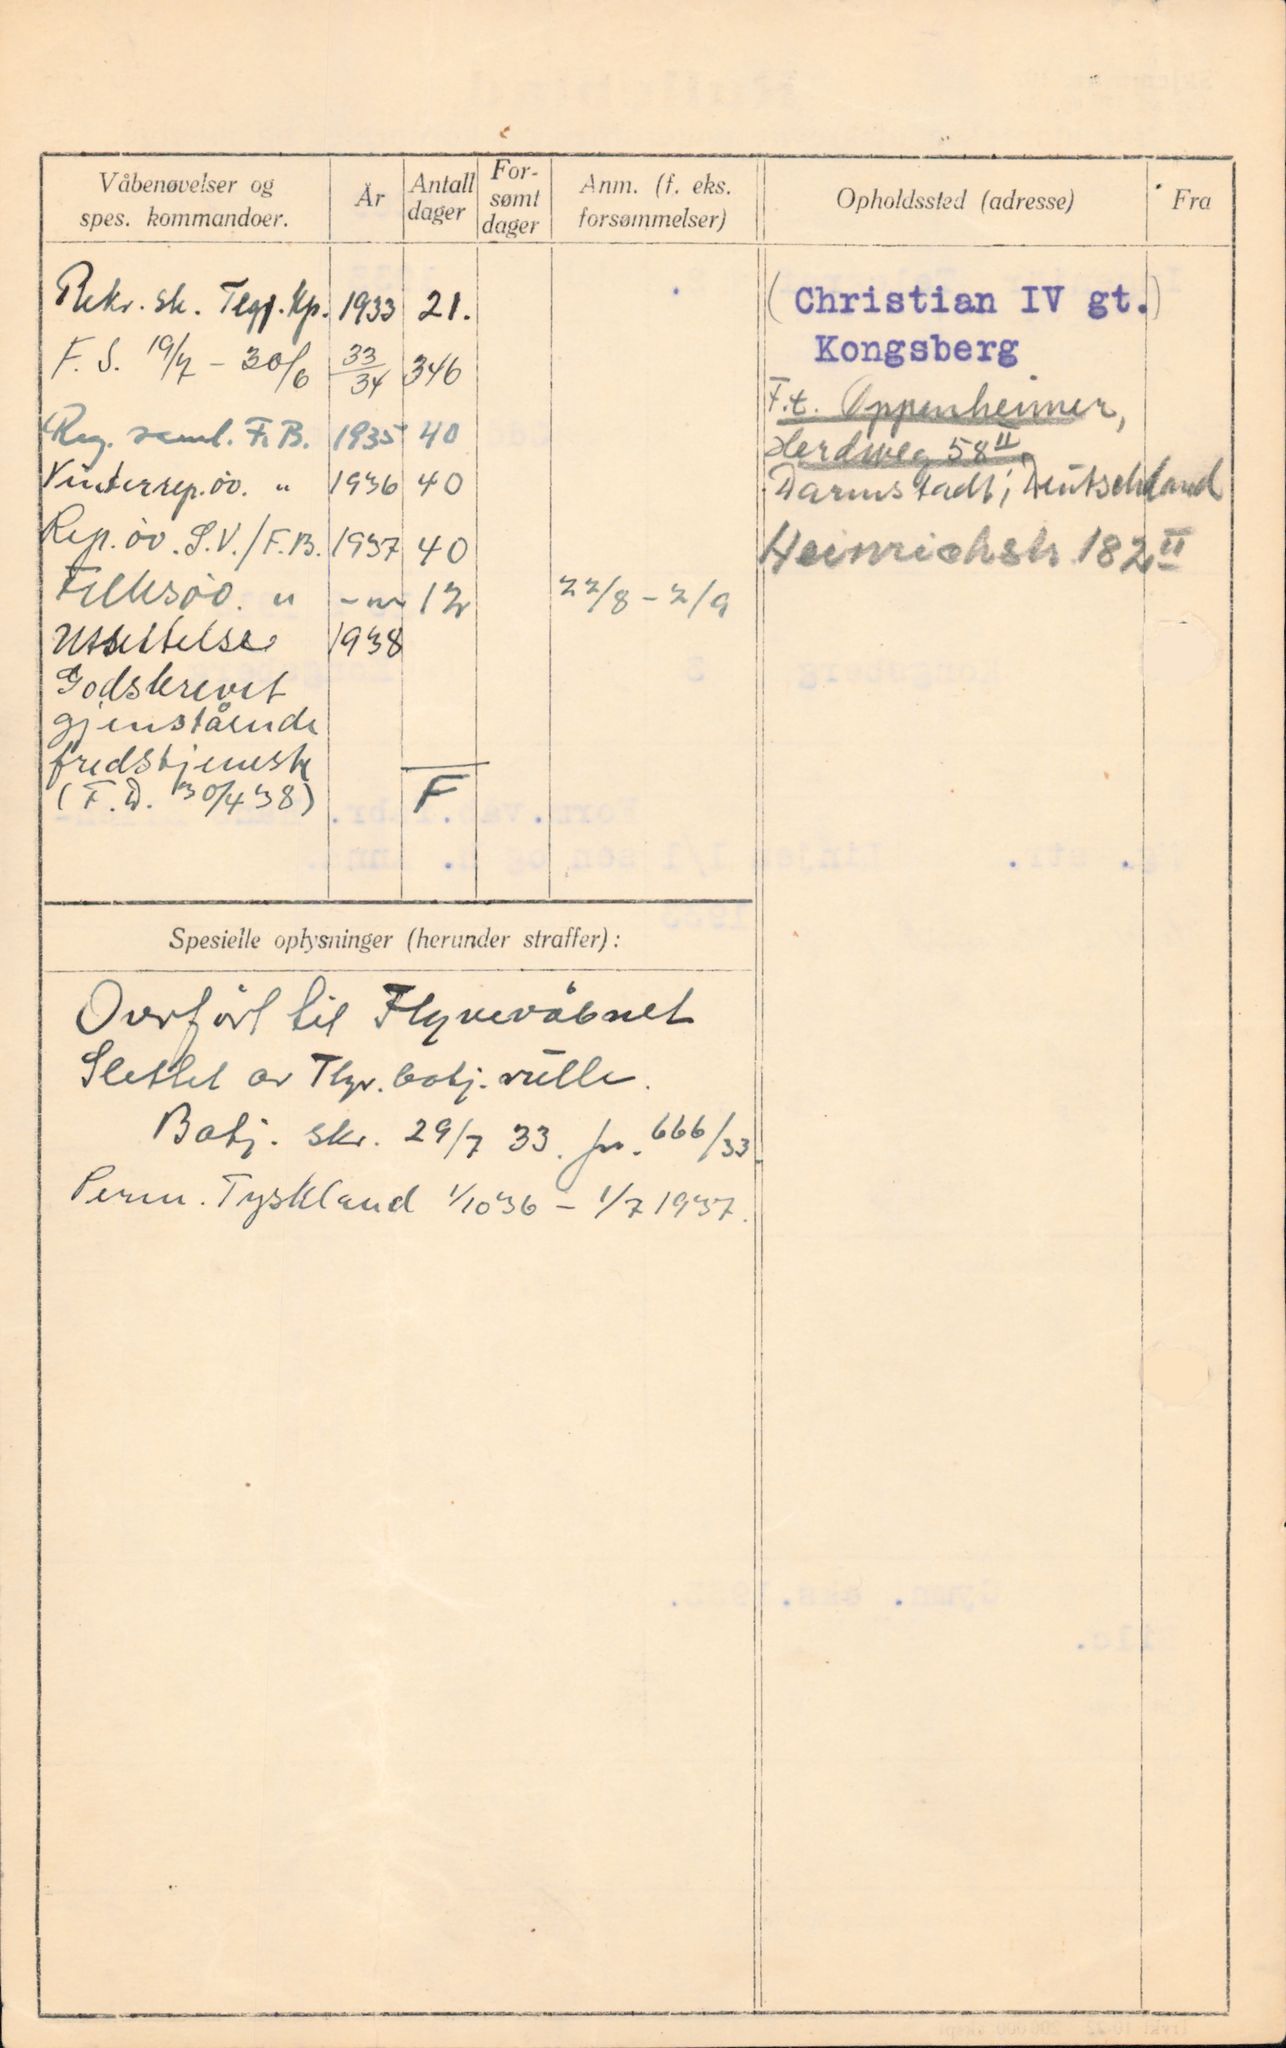 Våbenøvelser og
spes. kommandoer.
År
Antall
dager
For-
sømt
dager
Anm. (f. eks.
forsømmelser)
Opholdssted (adresse)
Fra
Rekr. sk. Tlgf. Kp. 1933 21.
F. S. 19/7 - 30/6 33/34 346
Reg. saml. F. B. 1935 40
Vinterrep.øv. " 1936 40
Rep. øv. S.V./F.B. 1937 40
Felttsøv. " -"- 12 22/8 - 2/9
Utsettelse 1938
Godskrevet
gjenstående
fredstjeneste
(F.D. 30/4 38) F
(Christian IV gt.)
Kongsberg
F.t. Oppenheimer,
Herdweg 58 II
Darmstadt, Deutschland
Heinrichstr. 182 II
Spesielle oplysninger (herunder straffer):
Overført til Flyvevåbnet
Slettet av Tlgr. batj. rulle.
Batj. skr. 29/7 33. jnr. 666/33.
Perm. Tyskland 1/10 36 - 1/7 1937.